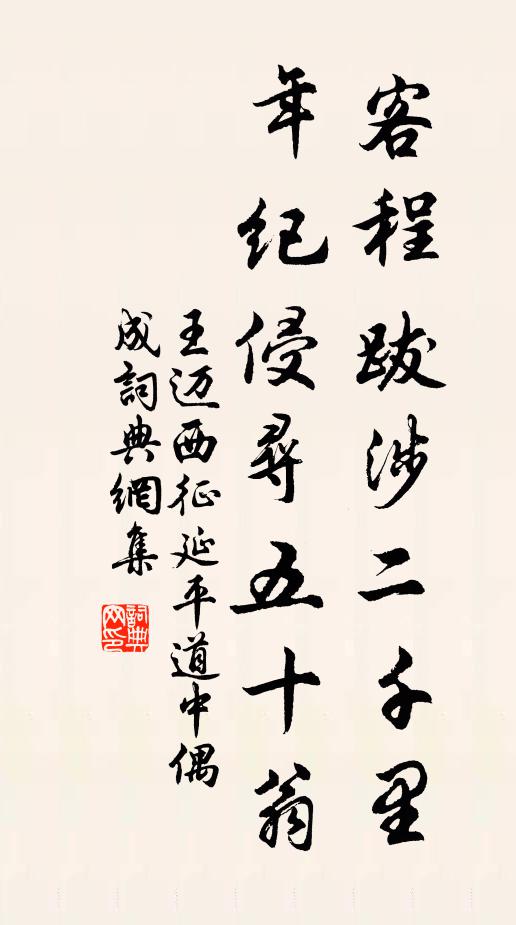 客程跋涉二千里
年紀侵尋五十翁
王迈西征延平道中偶
成詞典網集
詞典
网印